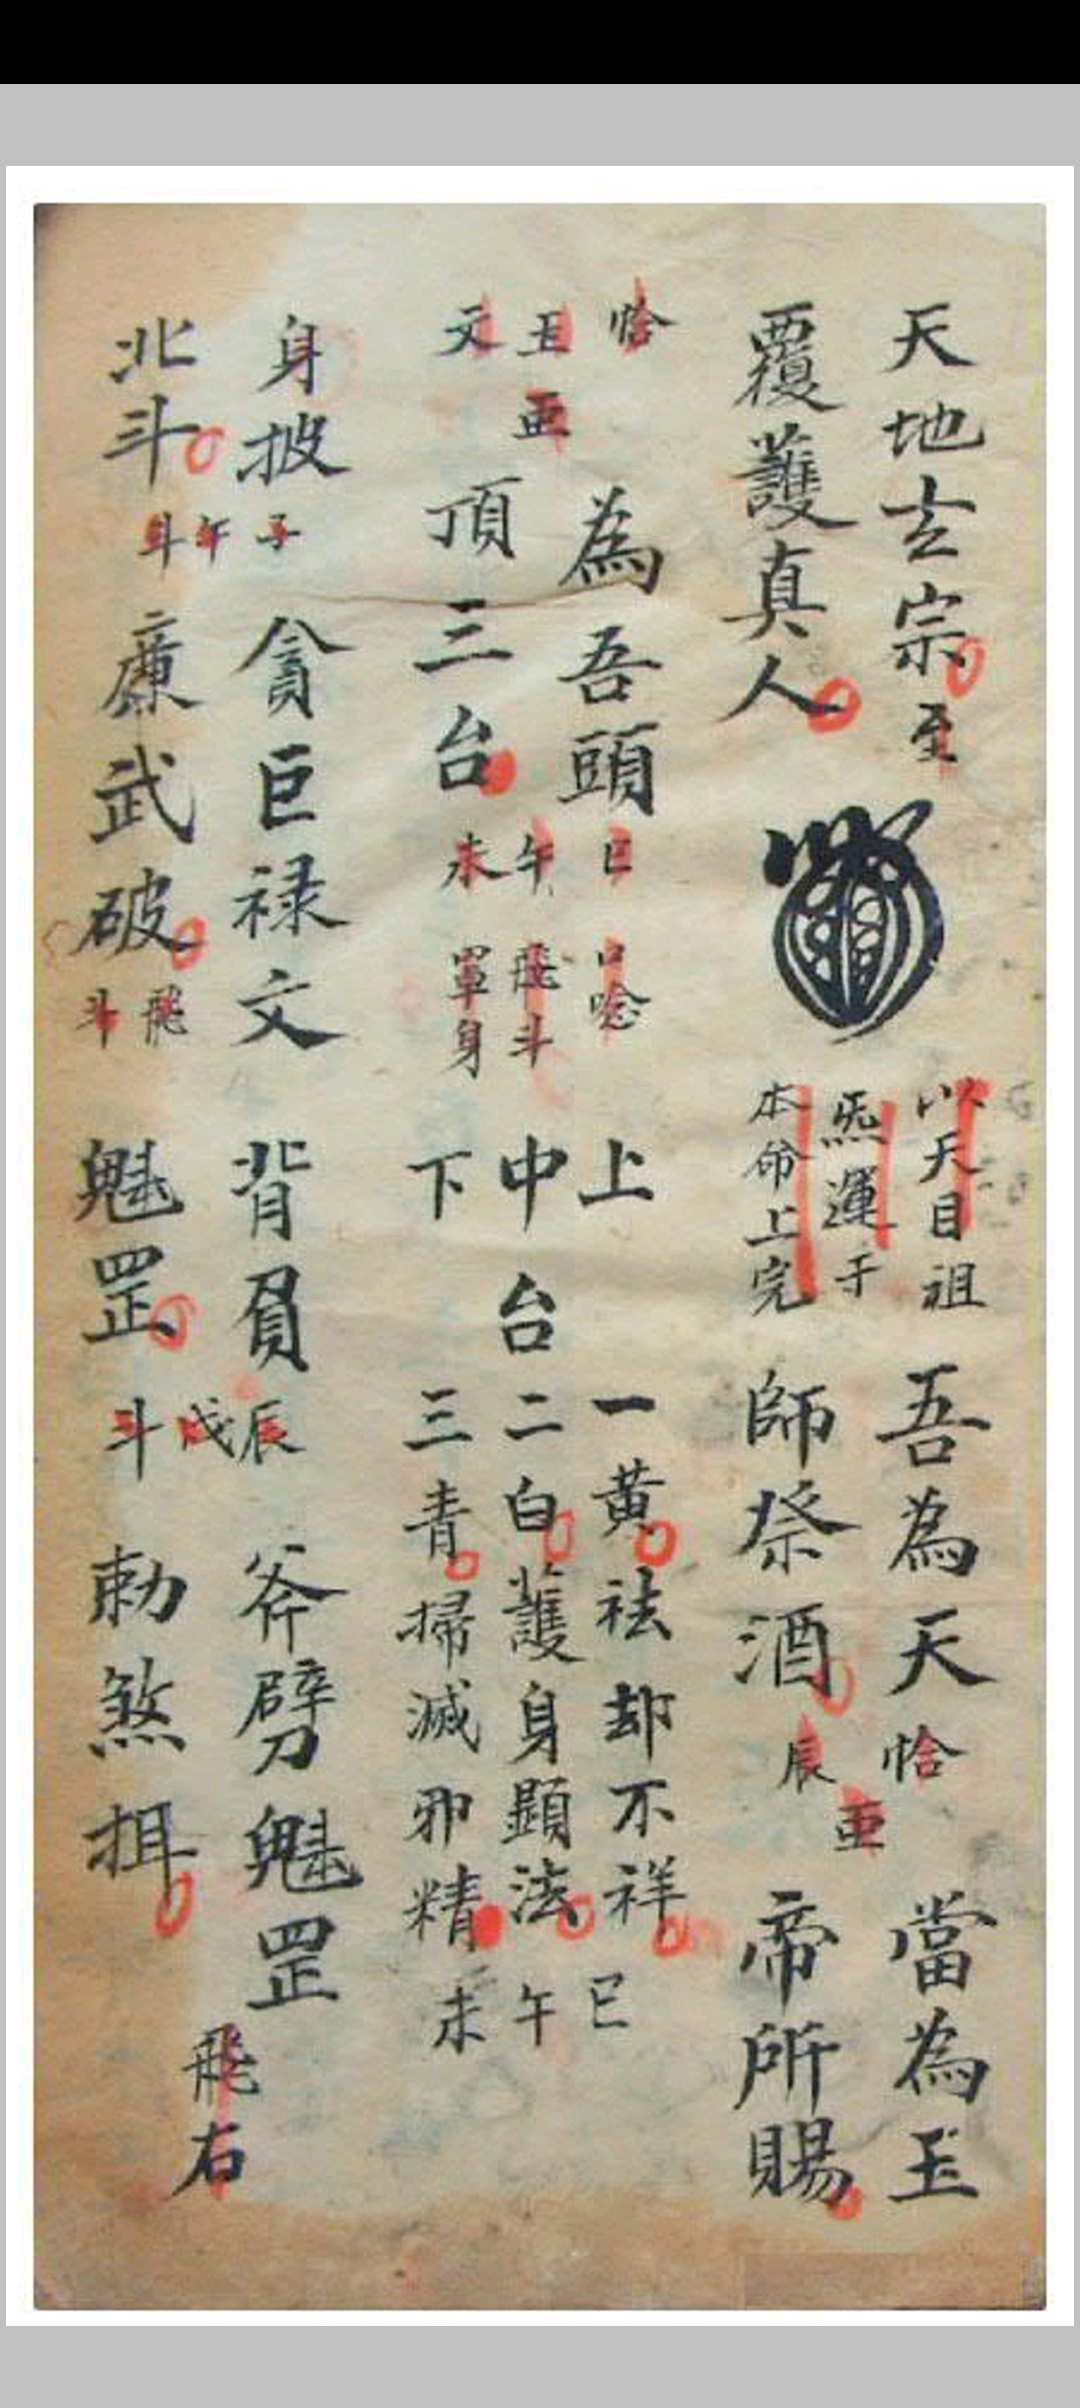 天地玄宗
覆護真人
至
以天目祖
炁運于
本命上完
吾為天
師祭酒
恰
亜
辰
當為玉
帝所賜
恰
丑
亜
文
為吾頭
頂三台
巳
午
未
口唸
飛斗
罩身
上
中台
下
一黃祛却不祥
二白護身顯法
三青掃滅邪精
巳
午
未
身披
北斗
子
午
斗
貪巨禄文
廉武破
飛
斗
背負
魁罡
辰
戌
斗
斧劈魁罡
勅煞揖
飛
右